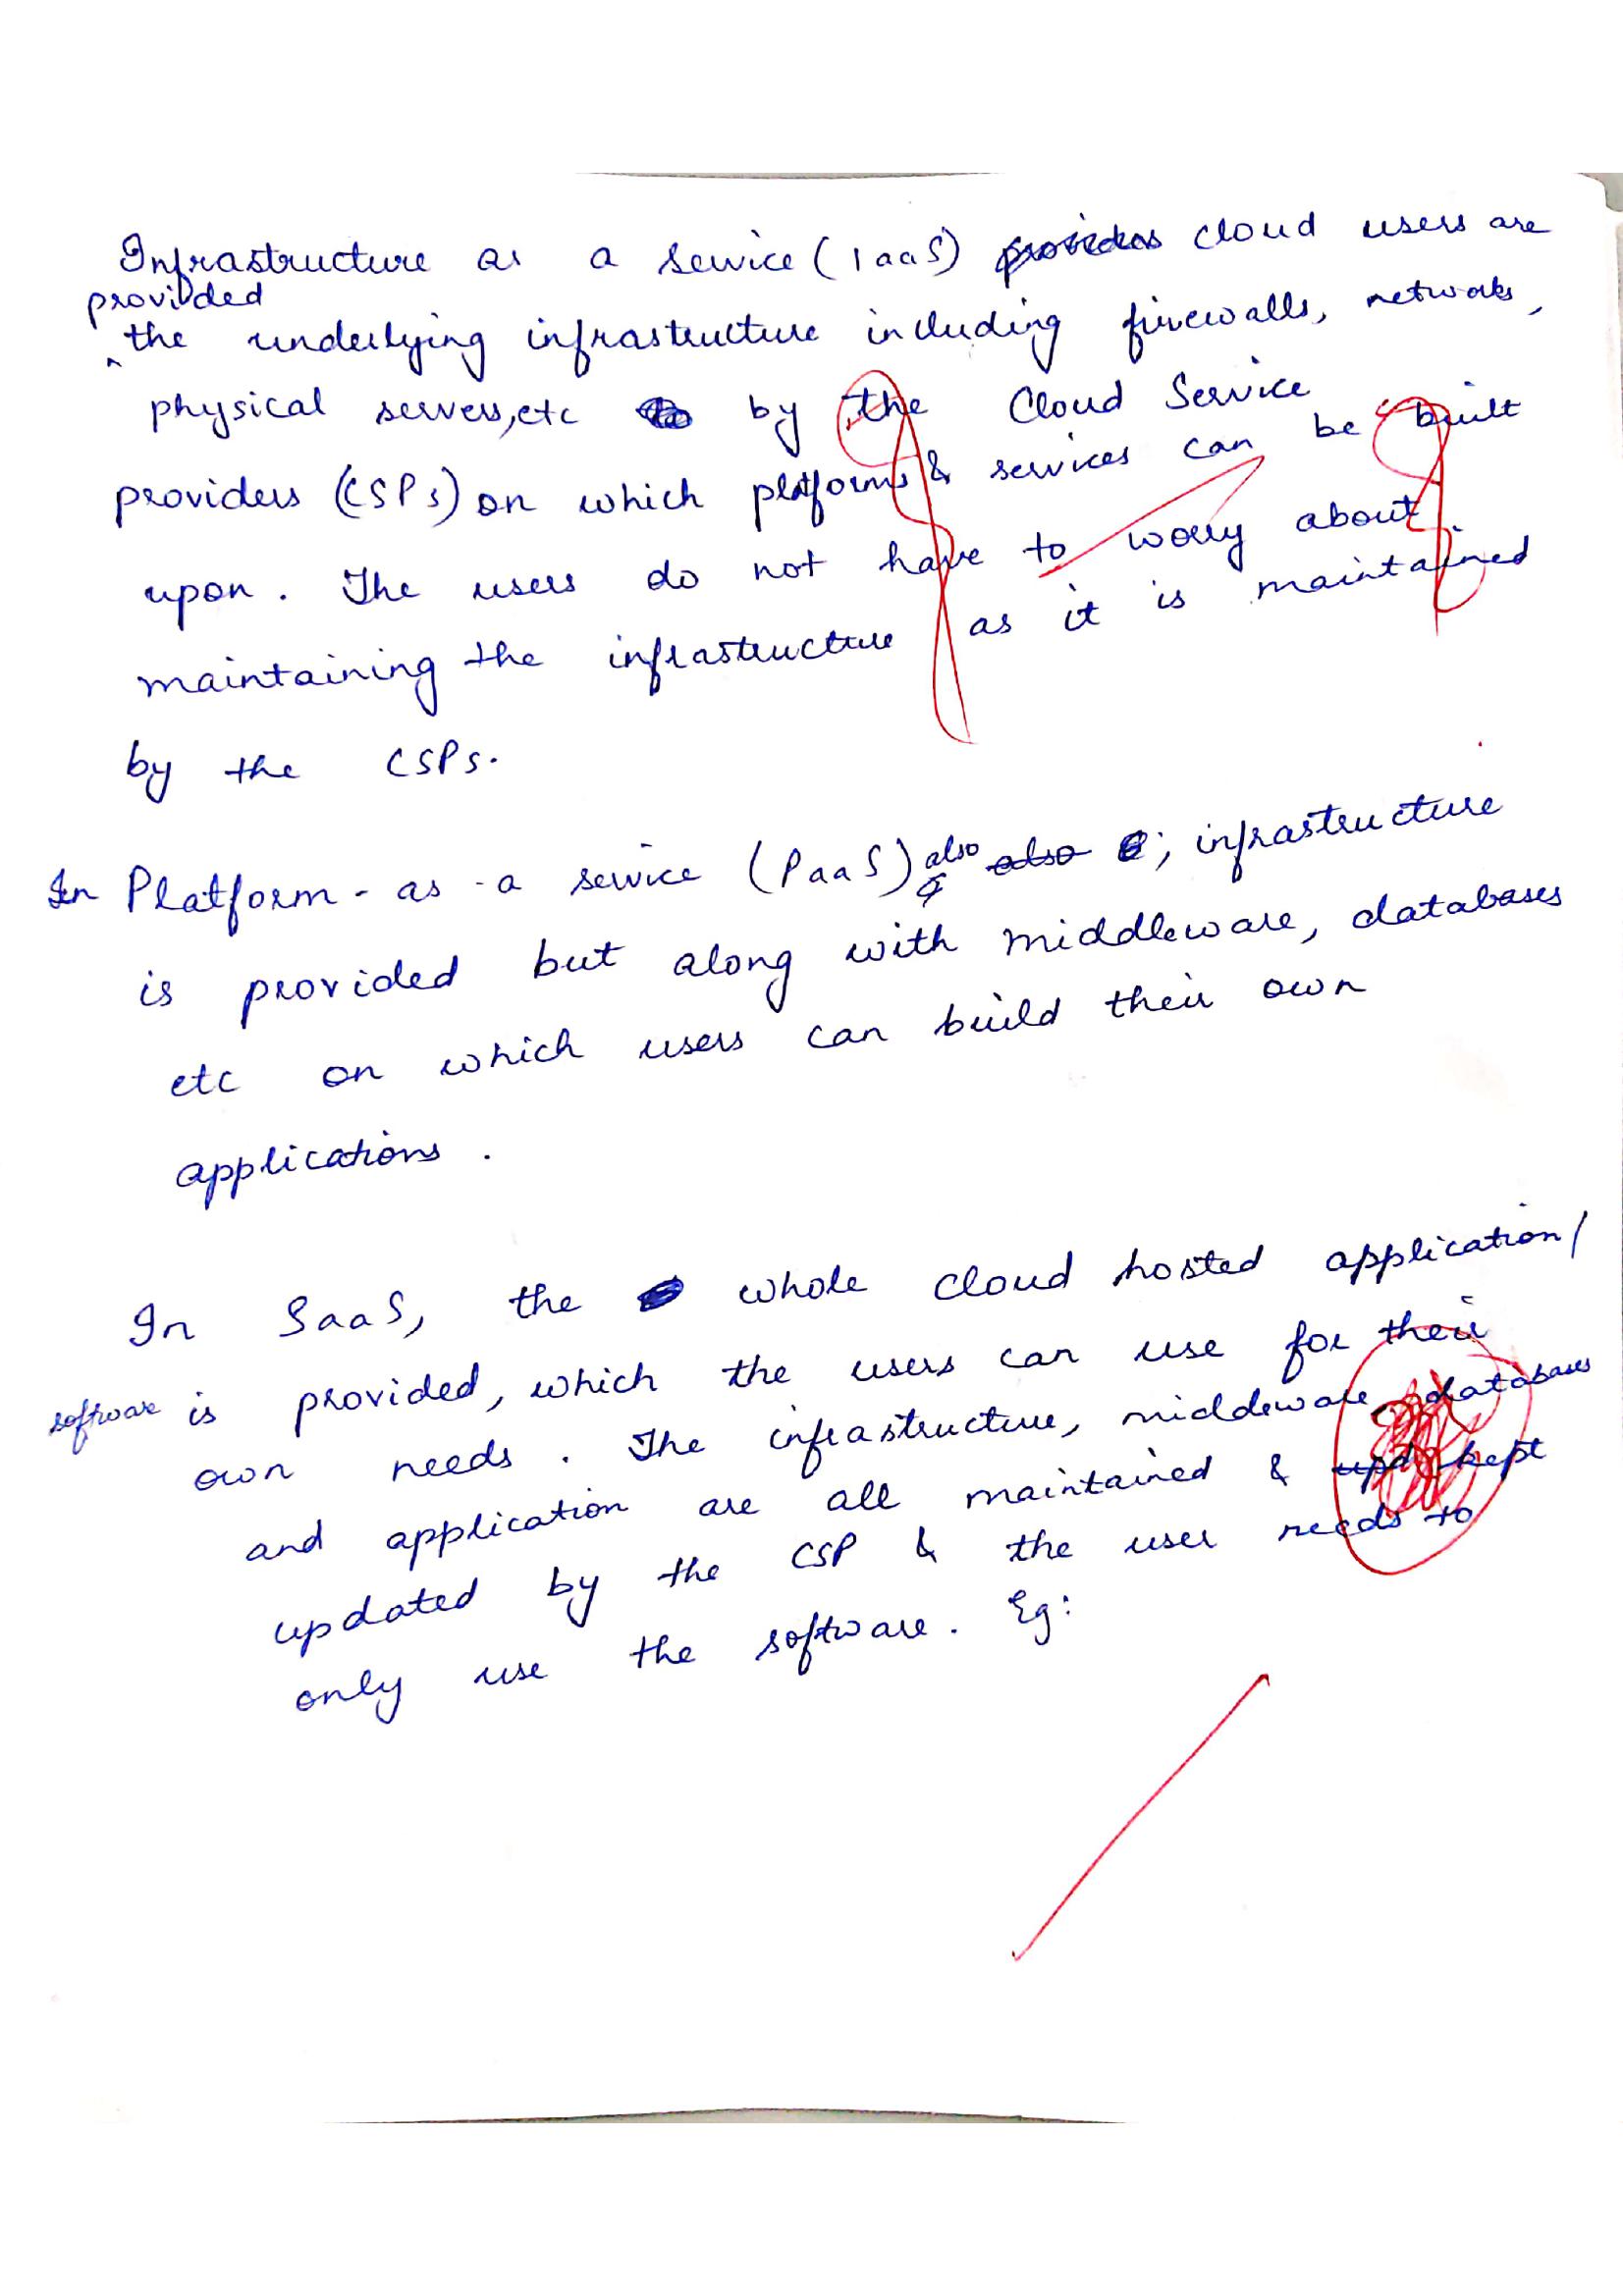 Infrastructure as a service (IaaS) provides cloud users are
provided
^the underlying infrastructure including firewalls, networks,
physical servers, etc by the Cloud Service
providers (CSPs) on which platforms & services can be built
upon. The users do not have to worry about
maintaining the infrastructure as it is maintained
by the CSPs.
In Platform - as - a service (PaaS) also also ; infrastructure
is provided but along with middleware, databases
etc on which users can build their own
applications.
In SaaS, the whole cloud hosted application/
software is provided, which the users can use for their
own needs. The infrastructure, middeware, databases
and application are all maintained & upd kept
updated by the CSP & the user needs to
only use the software. Eg: